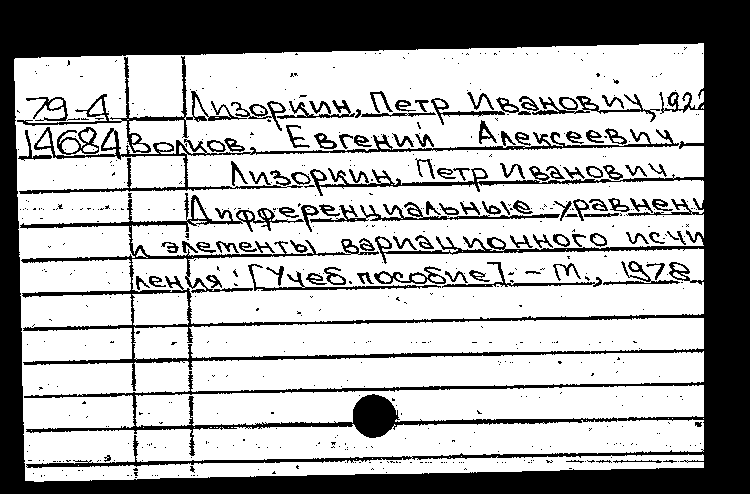 79-4 Лизоркин, Петр Иванович, 1922
14684 Волков, Евгений Алексеевич,
Лизоркин, Петр Иванович.
Дифференциальные уравнени
и элементы вариационного исчи
ления: [Учеб. пособие]. - М., 1978